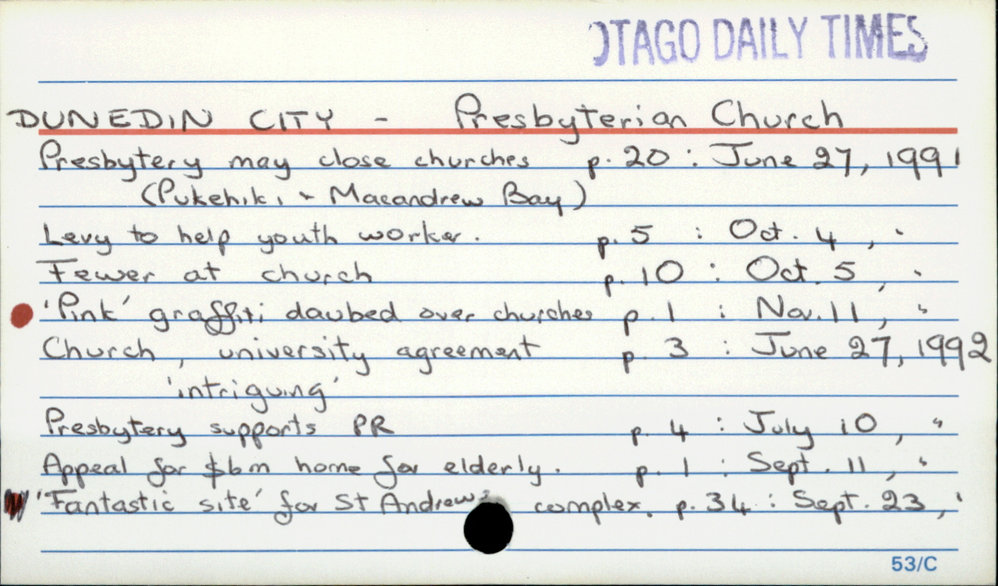 OTAGO DAILY TIMES
DUNEDIN CITY - Presbyterian Church
Presbytery may close churches p. 20 : June 27, 1991
(Pukehiki & Macandrew Bay)
Levy to help youth worker. p. 5 : Oct. 4, "
Fewer at church p. 10 : Oct. 5, "
'Pink' graffiti daubed over churches p. 1 : Nov. 11, "
Church, university agreement p. 3 : June 27, 1992
'intriguing'
Presbytery supports PR p. 4 : July 10, "
Appeal for $6m home for elderly. p. 1 : Sept. 11, "
'Fantastic site' for St Andrew's complex. p. 34 : Sept. 23, "
53/C